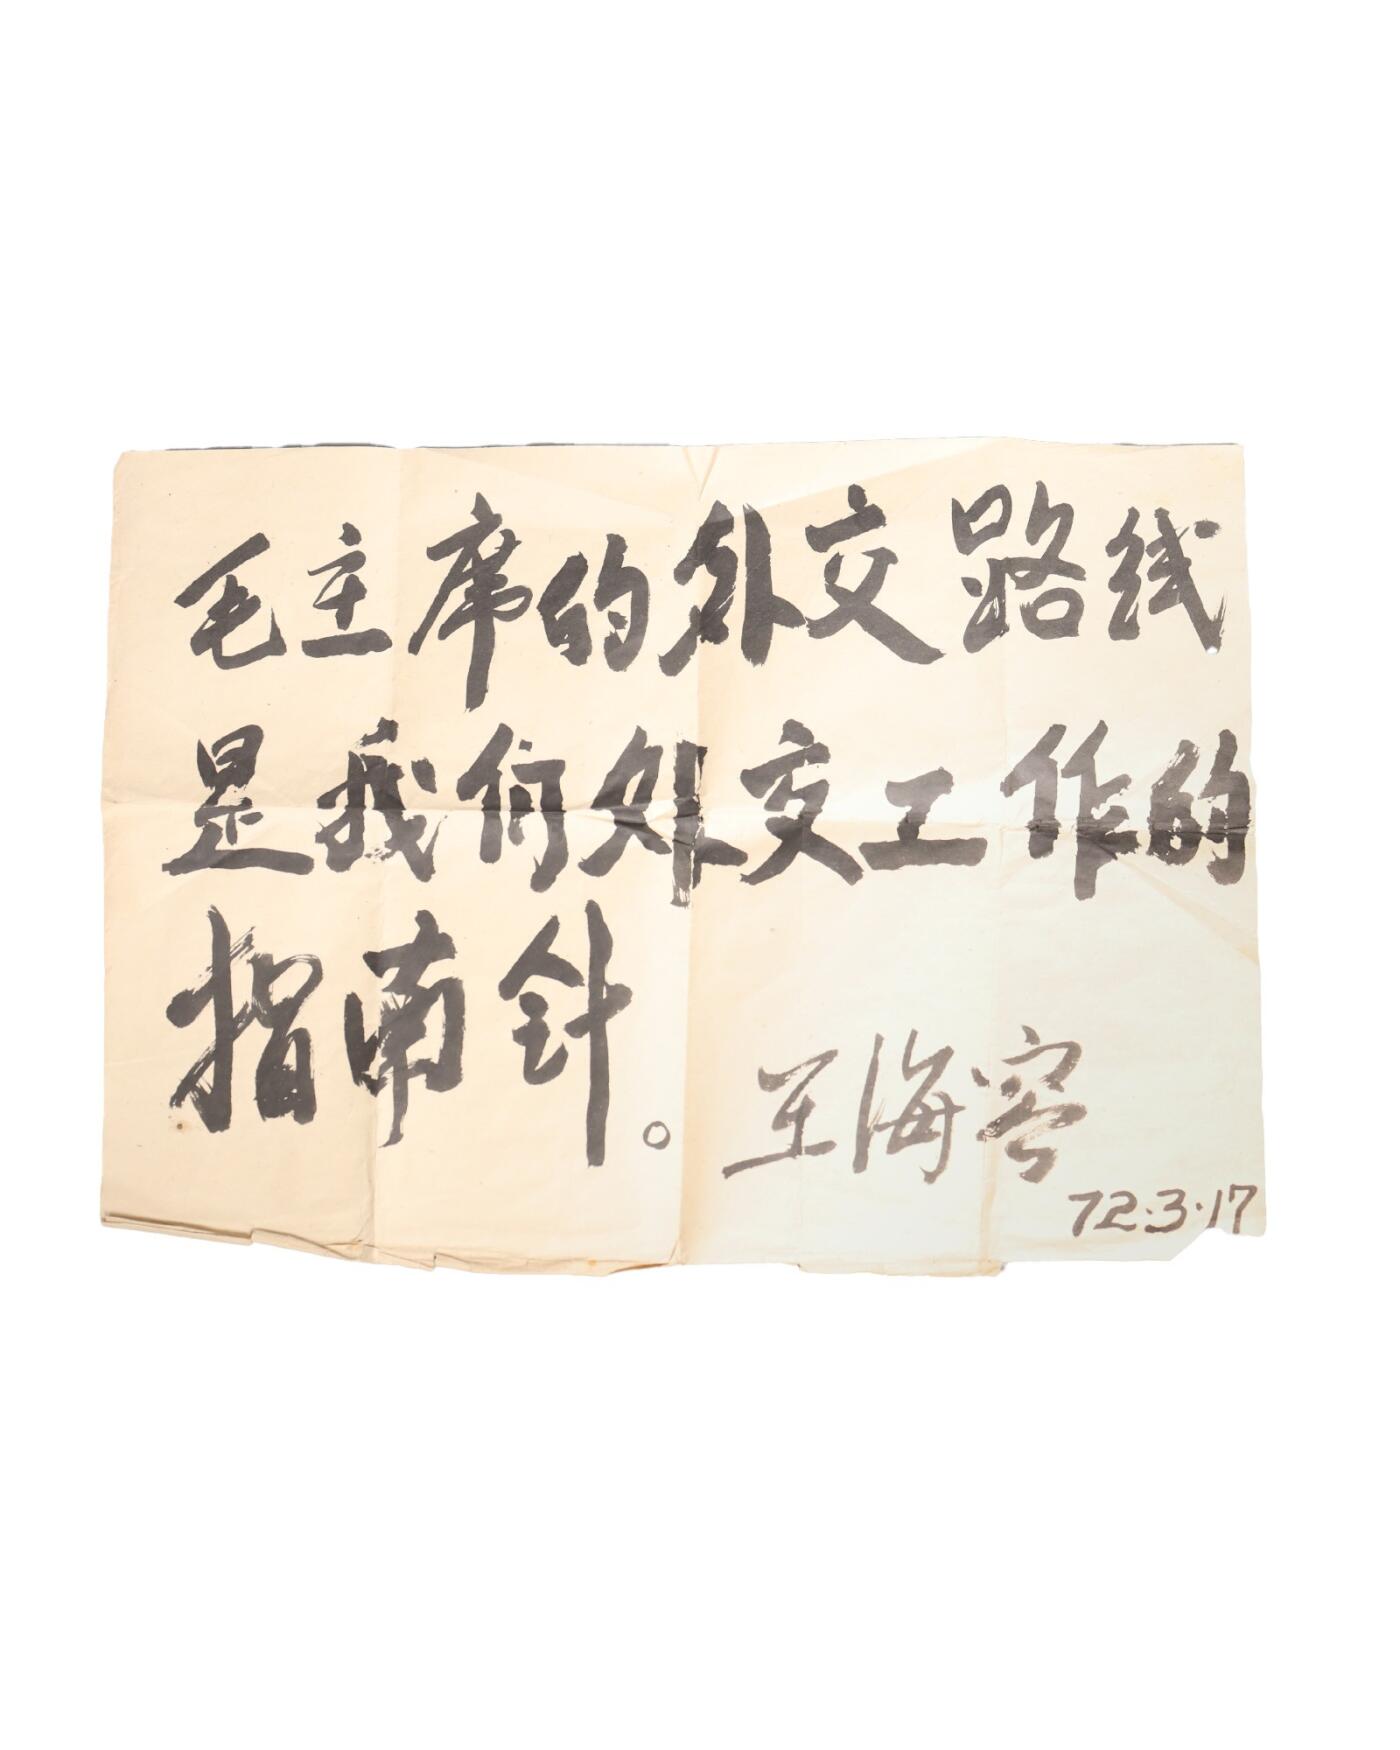 毛主席的外交路线
是我们外交工作的
指南针。
王海容
72.3.17